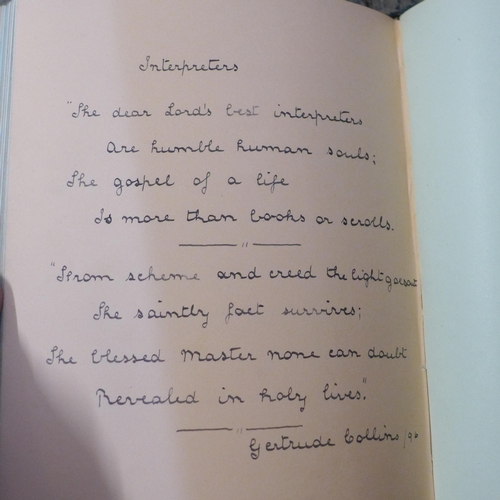 Interpreters
"The dear Lord's best interpreters
Are humble human souls;
The gospel of a life
Is more than books or scrolls.
"From scheme and creed the light goes out
The saintly fact survives;
The blessed Master none can doubt
Revealed in holy lives."
Gertrude Collins